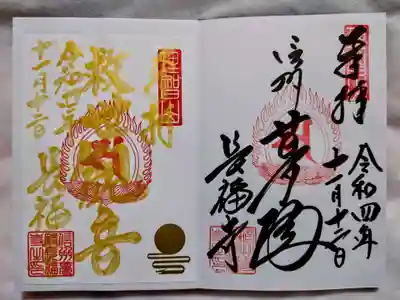 奉拝
令和四年
十一月十二日
信州
夢殿
長福寺
奉拝
救世観音
長福
令和四年
十一月十二日